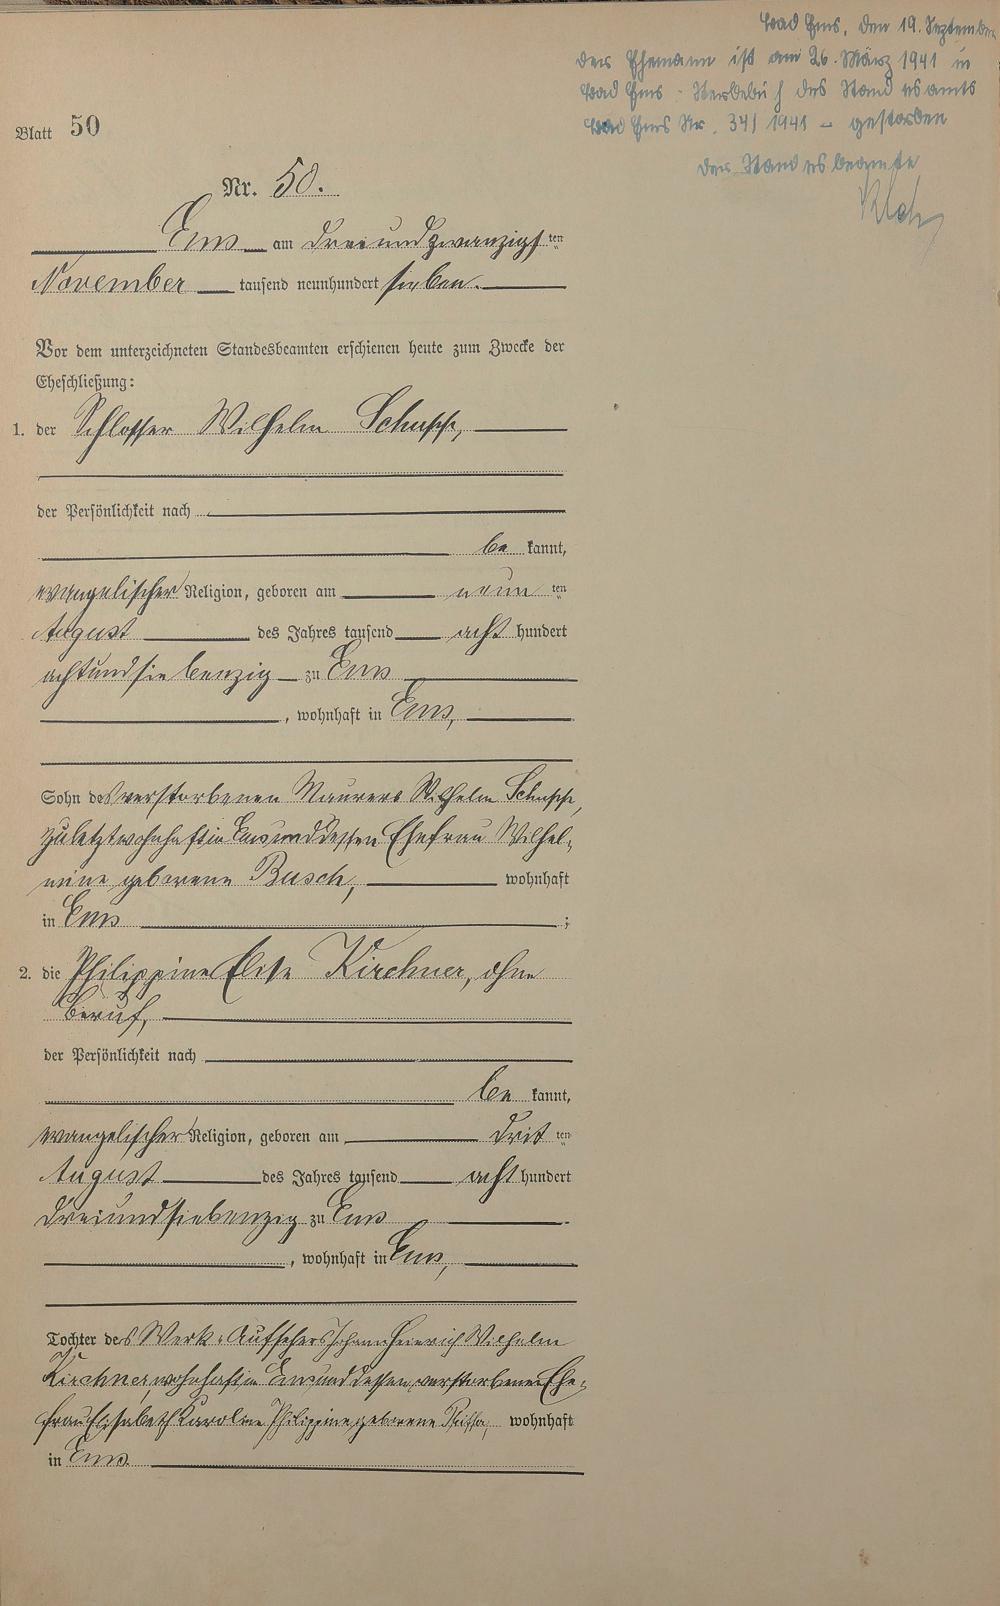 Bad Ems, den 19. September
der Ehemann ist am 26. März 1941 in
Bad Ems - Sterbebuch des Standesamts
Bad Ems Nr. 34/1941 - gestorben
Der Standesbeamte
Blatt 50
Nr. 50.
Ems am dreiundzwanzigsten
November tausend neunhundert sieben.
Vor dem unterzeichneten Standesbeamten erschienen heute zum Zwecke der
Eheschließung:
1. der Schlosser Wilhelm Schupp,
der Persönlichkeit nach
be kannt,
evangelischer Religion, geboren am neun ten
August des Jahres tausend acht hundert
achtundsiebenzig zu Ems
, wohnhaft in Ems,
Sohn des verstorbenen Maurers Wilhelm Schupp,
zuletzt wohnhaft in Ems und dessen Ehefrau Wilhel-
mine geborene Busch, wohnhaft
in Ems ;
2. die Philippine Elise Kirchner, ohne
Beruf,
der Persönlichkeit nach
be kannt,
evangelischer Religion, geboren am drit ten
August des Jahres tausend acht hundert
dreiundsiebenzig zu Ems
, wohnhaft in Ems,
Tochter des Werk-Aufsehers Johann Heinrich Wilhelm
Kirchner, wohnhaft in Ems und dessen verstorbenen Ehe-
frau Elisabeth Karoline Philippine geborene wohnhaft
in Ems